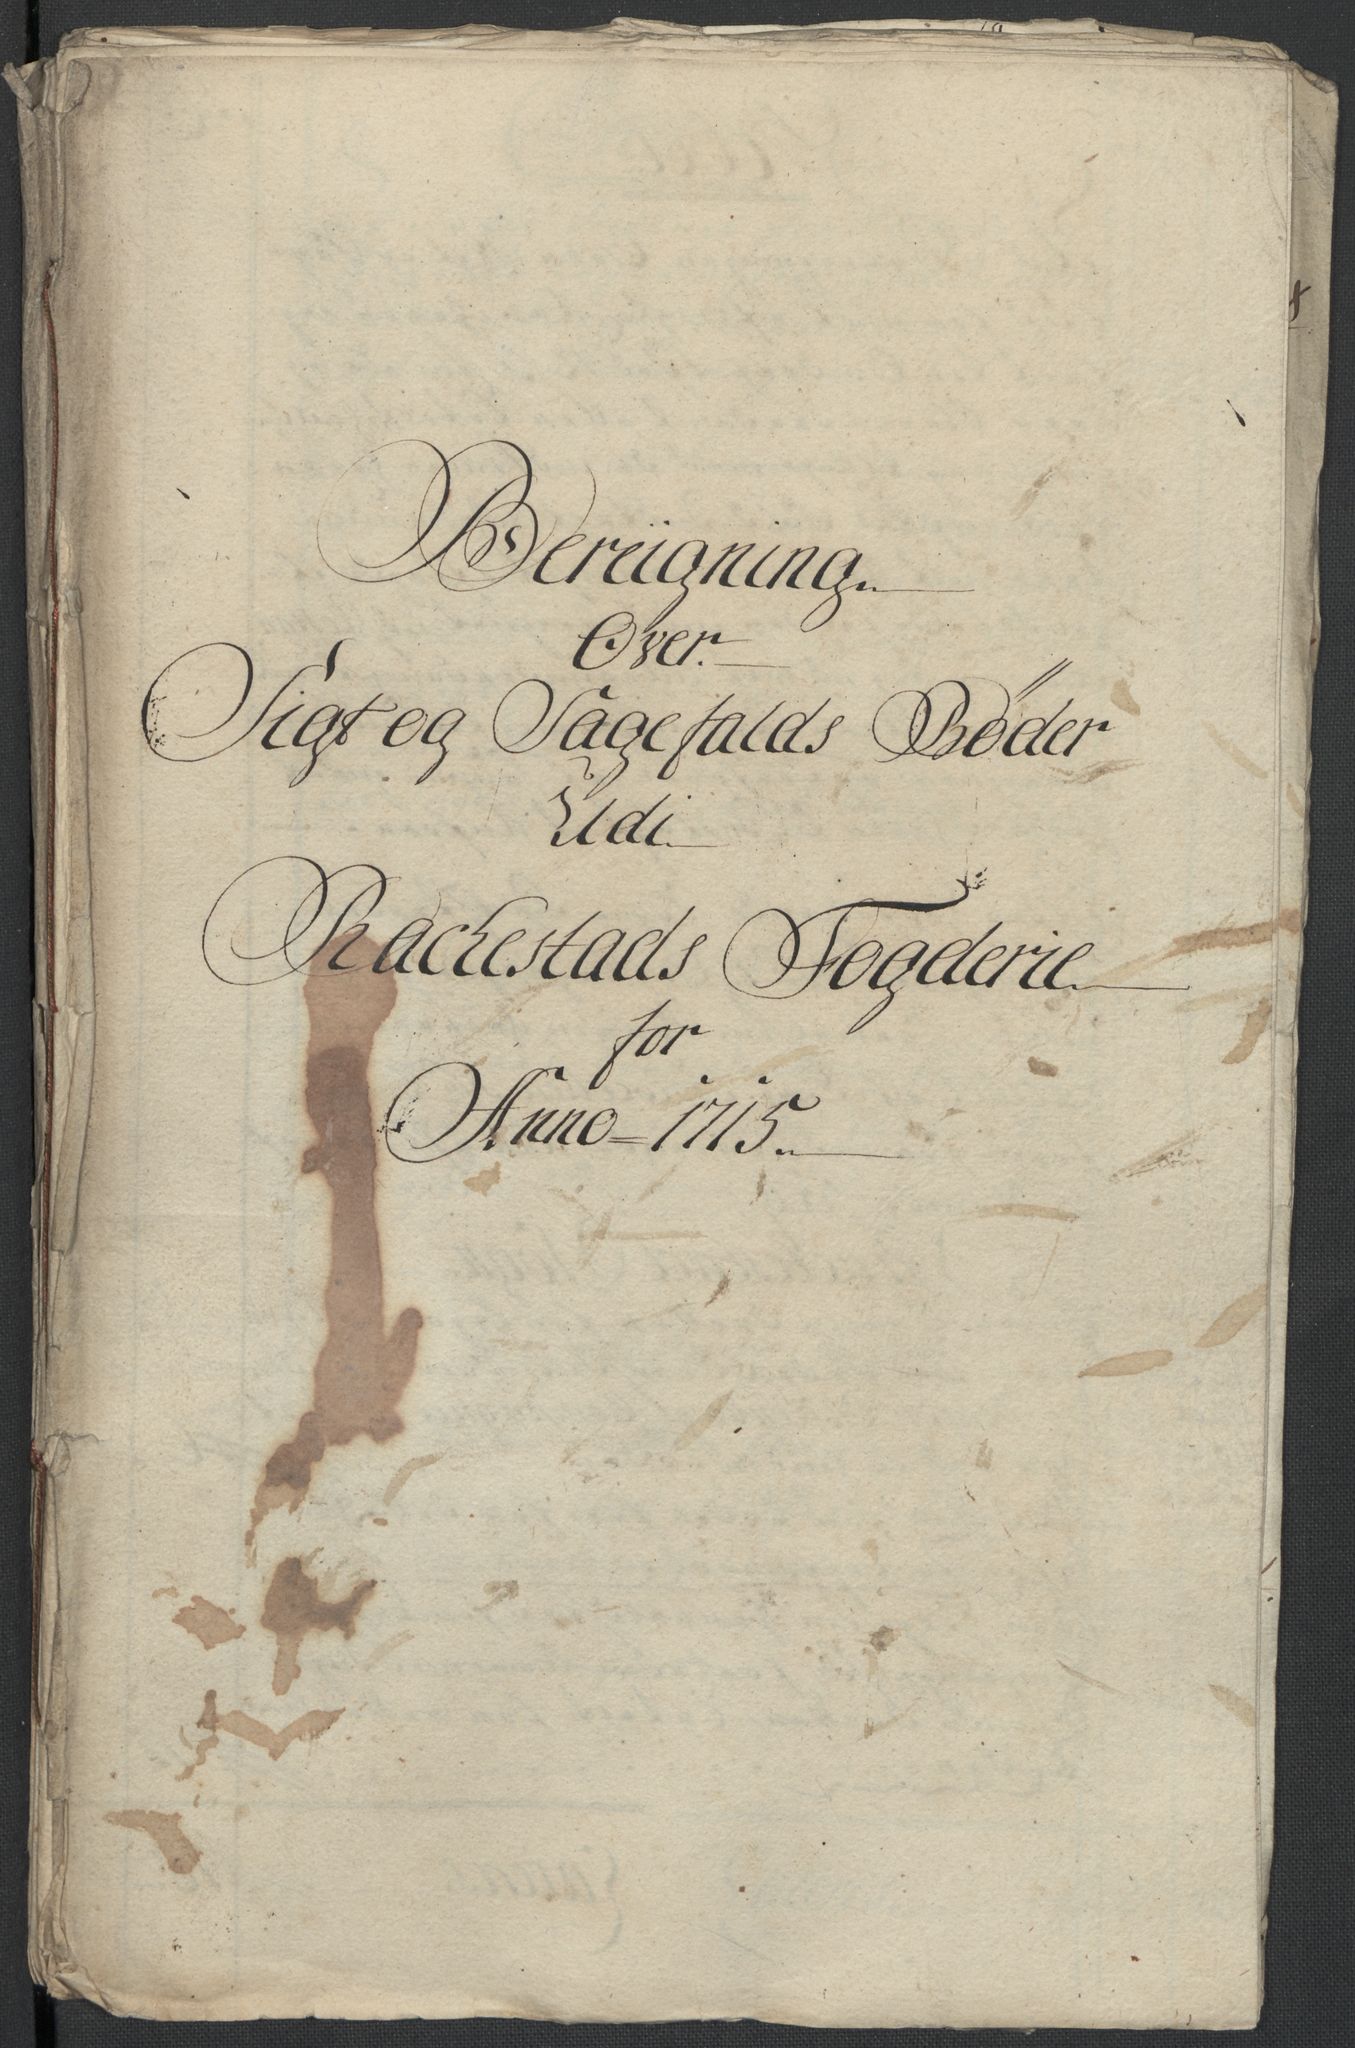 Bereigning
Over
Sigt og Sagefalds Bøder
Udi
Rackestads Fogderie
for
Anno 1715